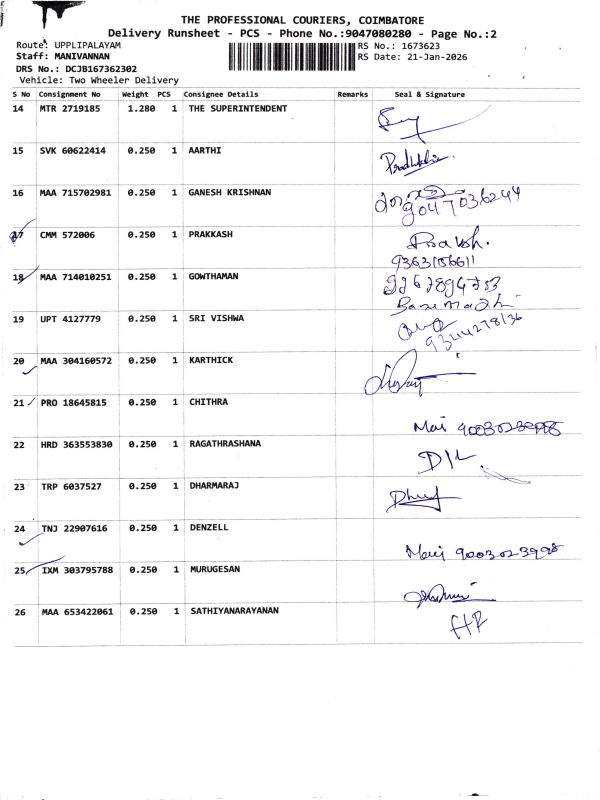 THE PROFESSIONAL COURIERS, COIMBATORE
Delivery Runsheet - PCS - Phone No.:9047080280 - Page No.:2
Route: UPPLIPALAYAM RS No.: 1673623
Staff: MANIVANNAN RS Date: 21-Jan-2026
DRS No.: DCJB167362302
Vehicle: Two Wheeler Delivery
S No Consignment No Weight PCS Consignee Details Remarks Seal & Signature
14 MTR 2719185 1.280 1 THE SUPERINTENDENT
15 SVK 60622414 0.250 1 AARTHI
16 MAA 715702981 0.250 1 GANESH KRISHNAN
9047036244
17 CMM 572006 0.250 1 PRAKKASH Prakash.
9363156611
18 MAA 714010251 0.250 1 GOWTHAMAN
19 UPT 4127779 0.250 1 SRI VISHWA
9344278136
20 MAA 304160572 0.250 1 KARTHICK
21 PRO 18645815 0.250 1 CHITHRA
Mani 9003023998
22 HRD 363553830 0.250 1 RAGATHRASHANA D/L
23 TRP 6037527 0.250 1 DHARMARAJ
24 TNJ 22907616 0.250 1 DENZELL
Mani 9003023998
25 IXM 303795788 0.250 1 MURUGESAN
26 MAA 653422061 0.250 1 SATHIYANARAYANAN